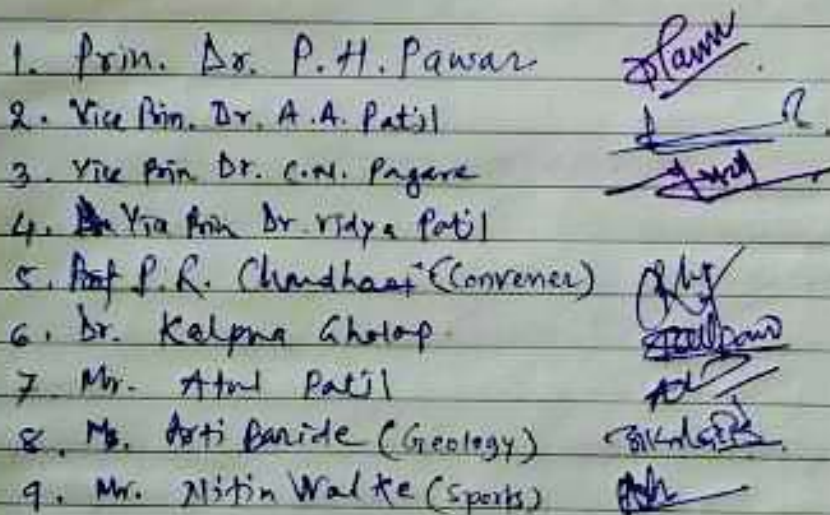 1. Prin. Dr. P. H. Pawar
2. Vice Prin. Dr. A.A. Patil
3. Vice Prin Dr. C.N. Pagare
4. Vice Prin Dr. Vidya Patil
5. Prof P.R. Chaudhari (Convener)
6. Dr. Kalpna Gholap
7. Mr. Atul Patil
8. Ms. Arti Baride (Geology)
9. Mr. Nitin Walke (Sports)